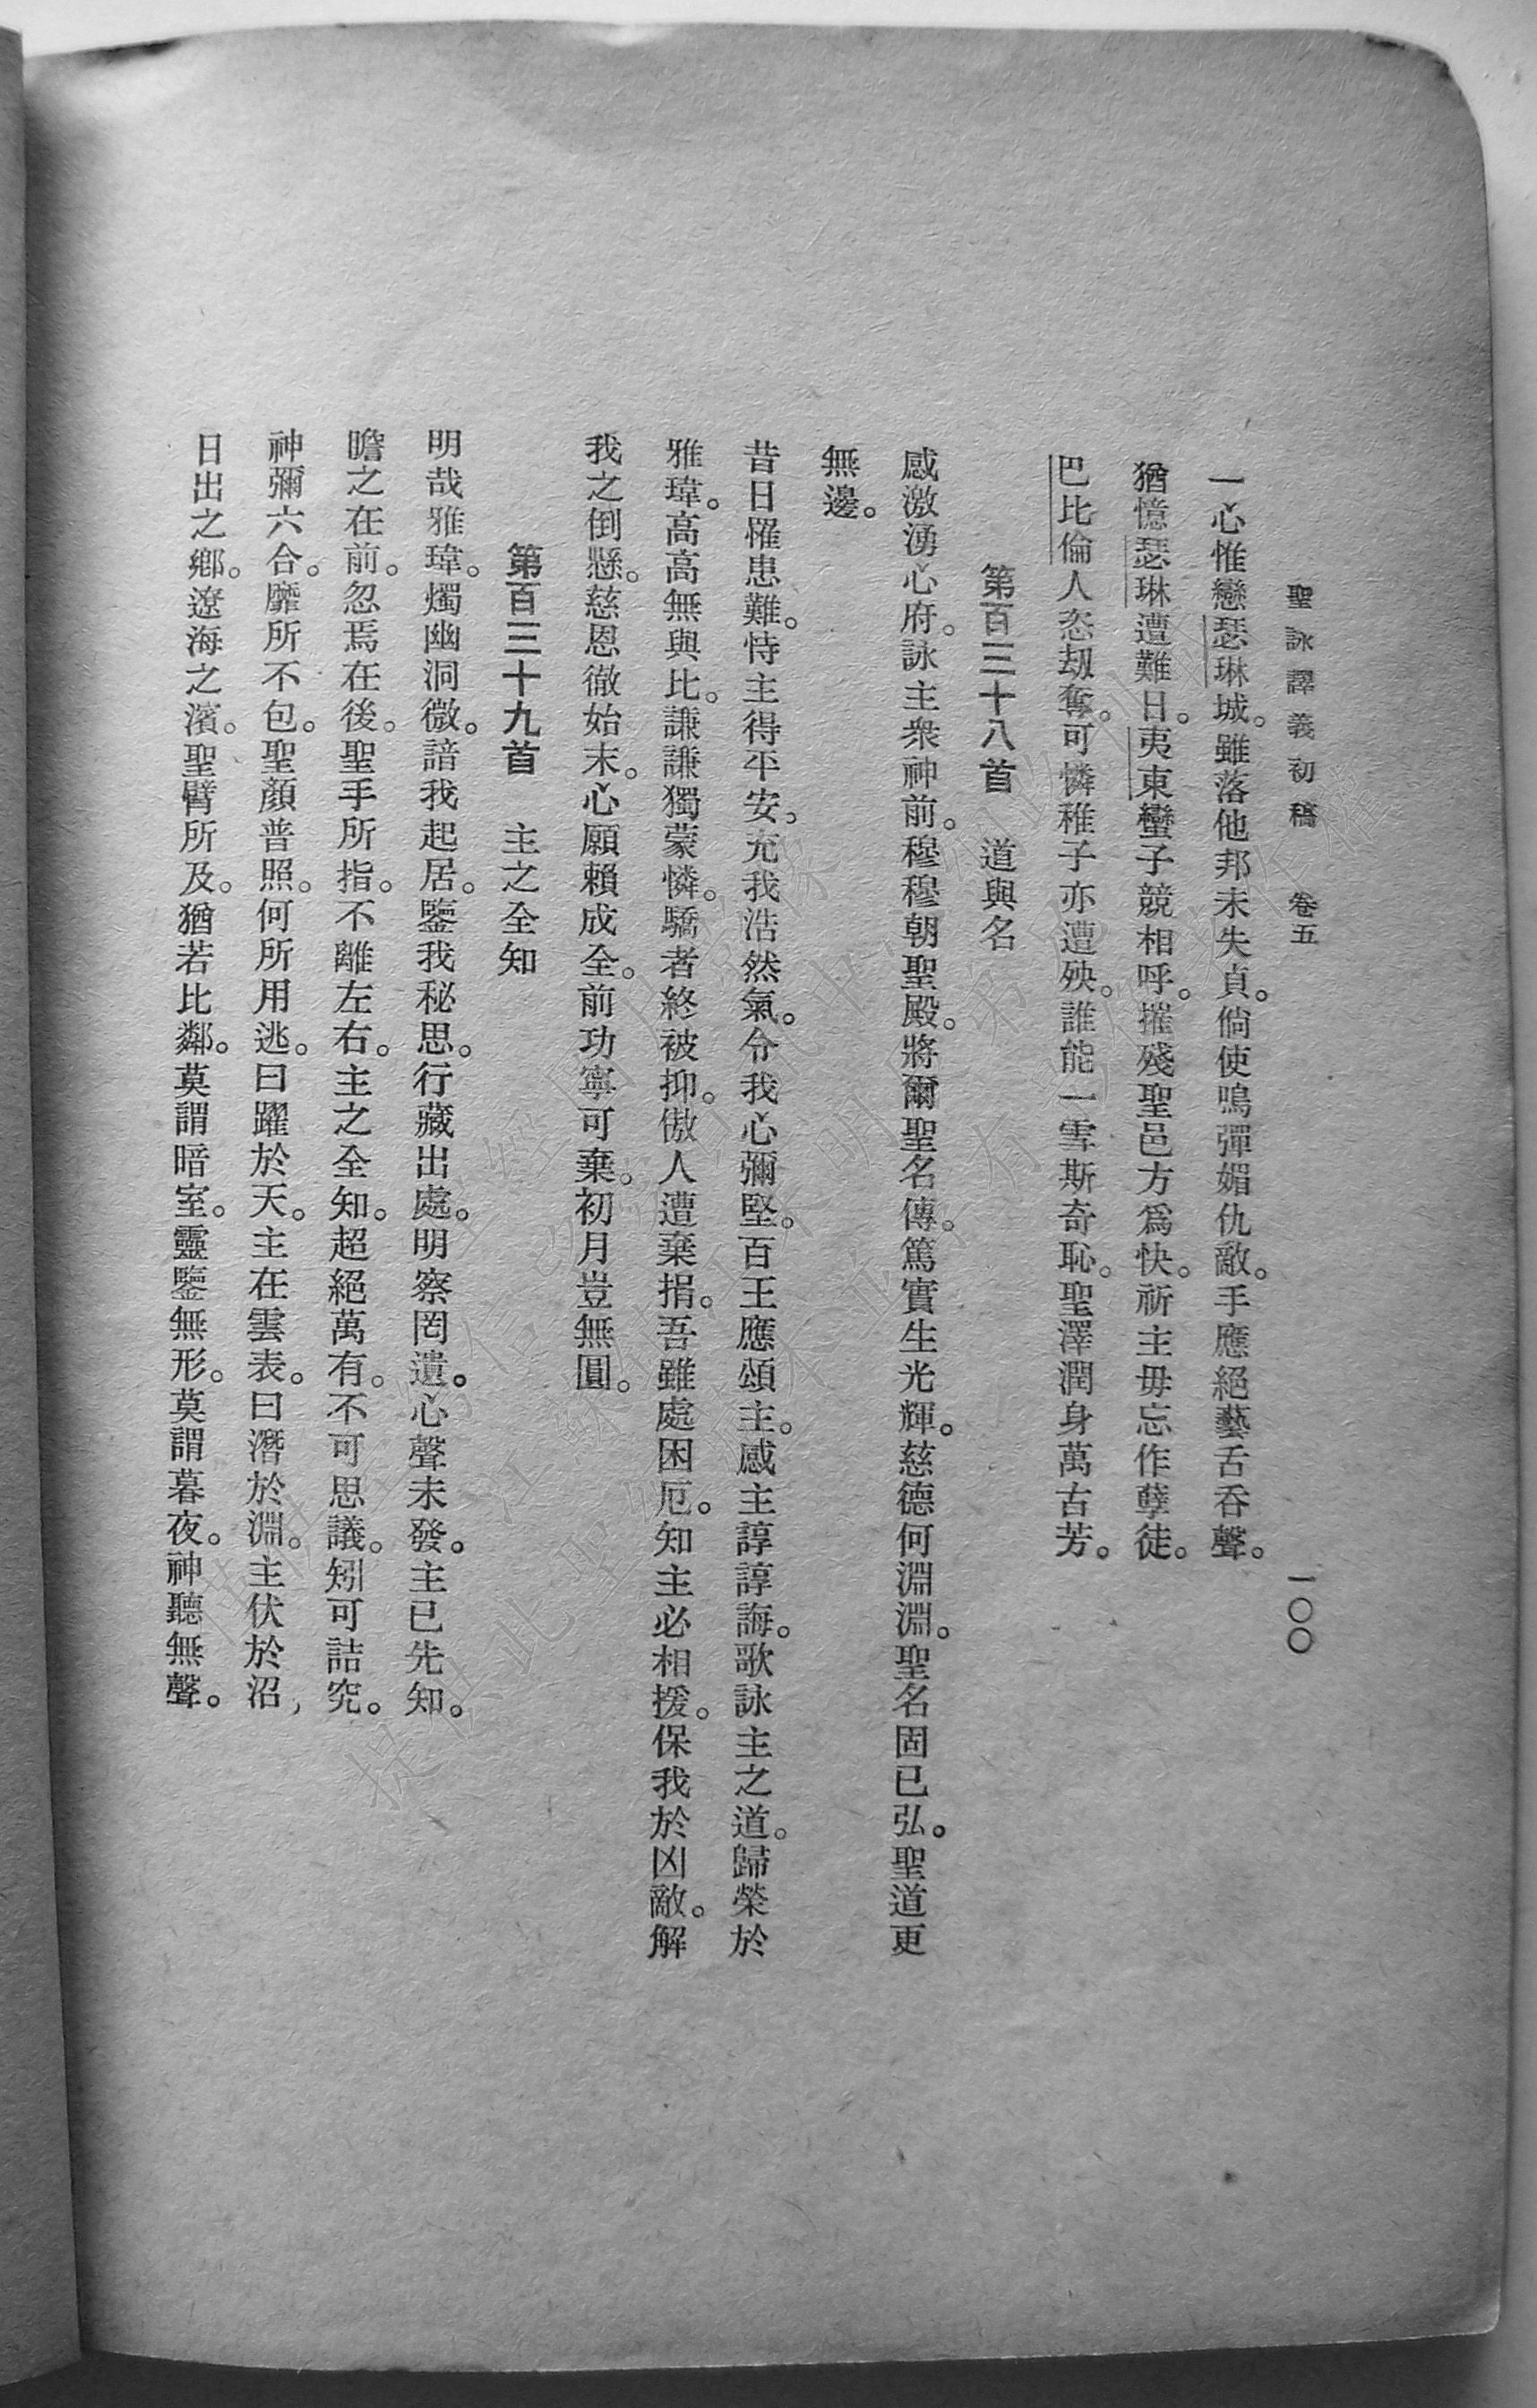 聖詠譯義初稿　卷五　一〇〇
一心惟戀瑟琳城。雖落他邦未失貞。倘使鳴彈媚仇敵。手應絕藝舌吞聲。
猶憶瑟琳遭難日。夷東蠻子競相呼。摧殘聖邑方爲快。祈主毋忘作孽徒。
巴比倫人恣刼奪。可憐稚子亦遭殃。誰能一雪斯奇恥。聖澤潤身萬古芳。
第百三十八首　道與名
感激湧心府。詠主衆神前。穆穆朝聖殿。將爾聖名傳。篤實生光輝。慈德何淵淵。聖名固已弘。聖道更
無邊。
昔日罹患難。恃主得平安。充我浩然氣。令我心彌堅。百王應頌主。感主諄諄誨。歌詠主之道。歸榮於
雅瑋。高高無與比。謙謙獨蒙憐。驕者終被抑。傲人遭棄捐。吾雖處困厄。知主必相援。保我於凶敵。解
我之倒懸。慈恩徹始末。心願賴成全。前功寧可棄。初月豈無圓。
第百三十九首　主之全知
明哉雅瑋。燭幽洞微。諳我起居。鑒我秘思。行藏出處。明察罔遺。心聲未發。主已先知。
瞻之在前。忽焉在後。聖手所指。不離左右。主之全知。超絕萬有。不可思議。矧可詰究。
神彌六合。靡所不包。聖顏普照。何所用逃。曰躍於天。主在雲表。曰潛於淵。主伏於沼，
日出之鄉。遼海之濱。聖臂所及。猶若比鄰。莫謂暗室。靈鑒無形。莫謂暮夜。神聽無聲。